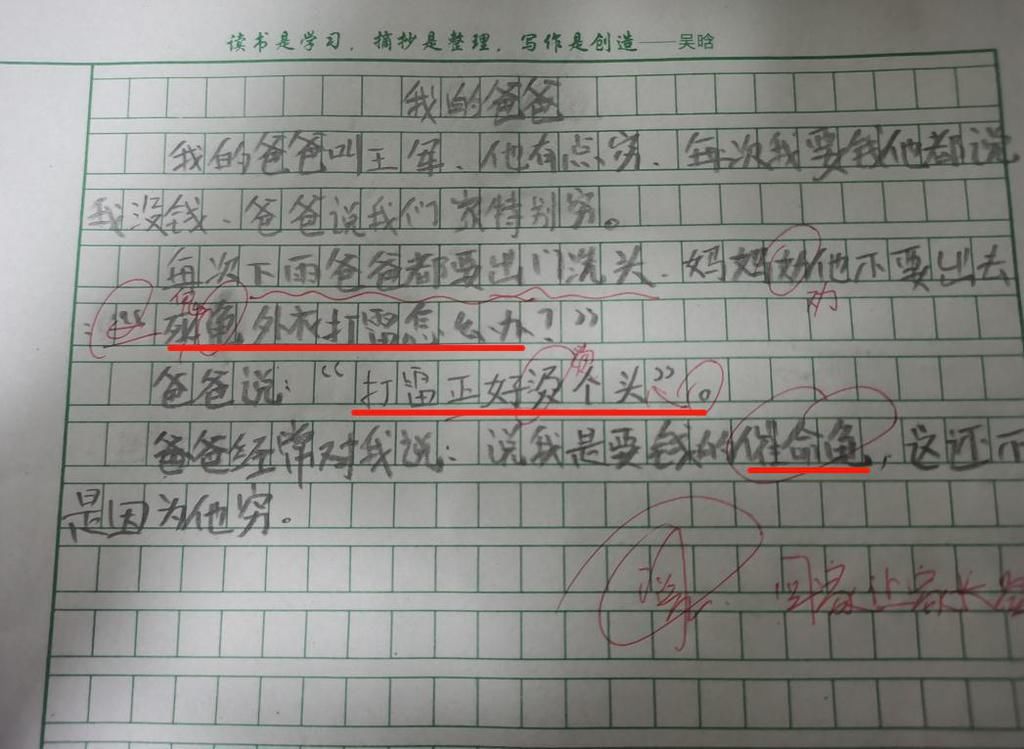 读书是学习，摘抄是整理，写作是创造——吴晗
我的爸爸
我的爸爸叫王军、他有点穷、每次我要钱他都说
我没钱、爸爸说我们家特别穷。
每次下雨爸爸都要出门洗头、妈妈劝他不要出去
：“外衣打雷怎么办？”
爸爸说：“打雷正好没个头”。
爸爸经常对我说：说我是要钱的催命龟，这还不
是因为他穷。
回家让家长